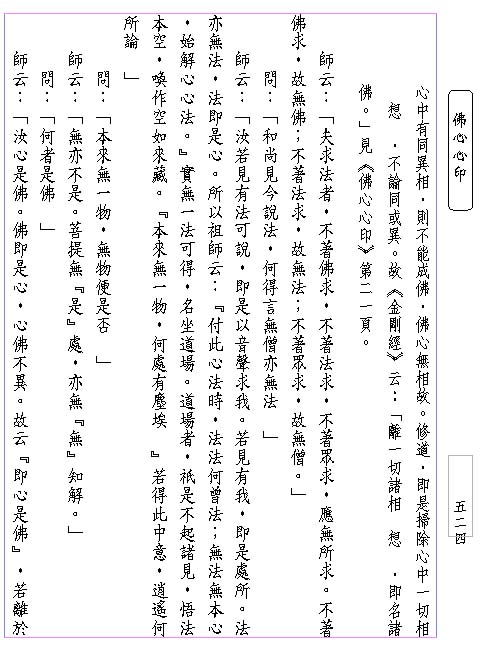 佛心心印
五二四
心中有同異相，則不能成佛，佛心無相故。修道，即是掃除心中一切相
想　，不論同或異。故《金剛經》云：「離一切諸相　想　，即名諸
佛。」見《佛心心印》第二一頁。
師云：「夫求法者，不著佛求，不著法求，不著眾求，應無所求。不著
佛求，故無佛；不著法求，故無法；不著眾求，故無僧。」
問：「和尚見今說法，何得言無僧亦無法　」
師云：「汝若見有法可說，即是以音聲求我。若見有我，即是處所。法
亦無法，法即是心。所以祖師云：『付此心法時，法法何曾法；無法無本心
，始解心心法。』實無一法可得，名坐道場。道場者，祇是不起諸見，悟法
本空，喚作空如來藏。『本來無一物，何處有塵埃　』若得此中意，逍遙何
所論　」
問：「本來無一物，無物便是否　」
師云：「無亦不是。菩提無『是』處，亦無『無』知解。」
問：「何者是佛　」
師云：「汝心是佛。佛即是心，心佛不異。故云『即心是佛』，若離於